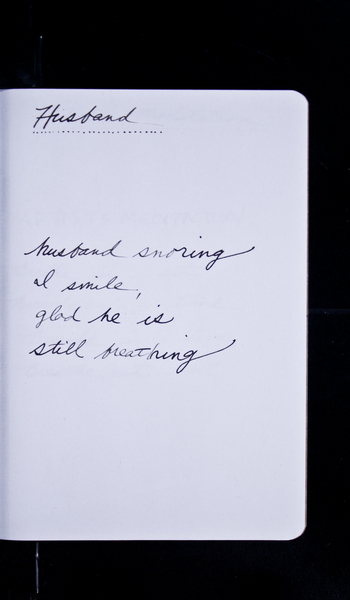 Husband
husband snoring
I smile,
glad he is
still breathing